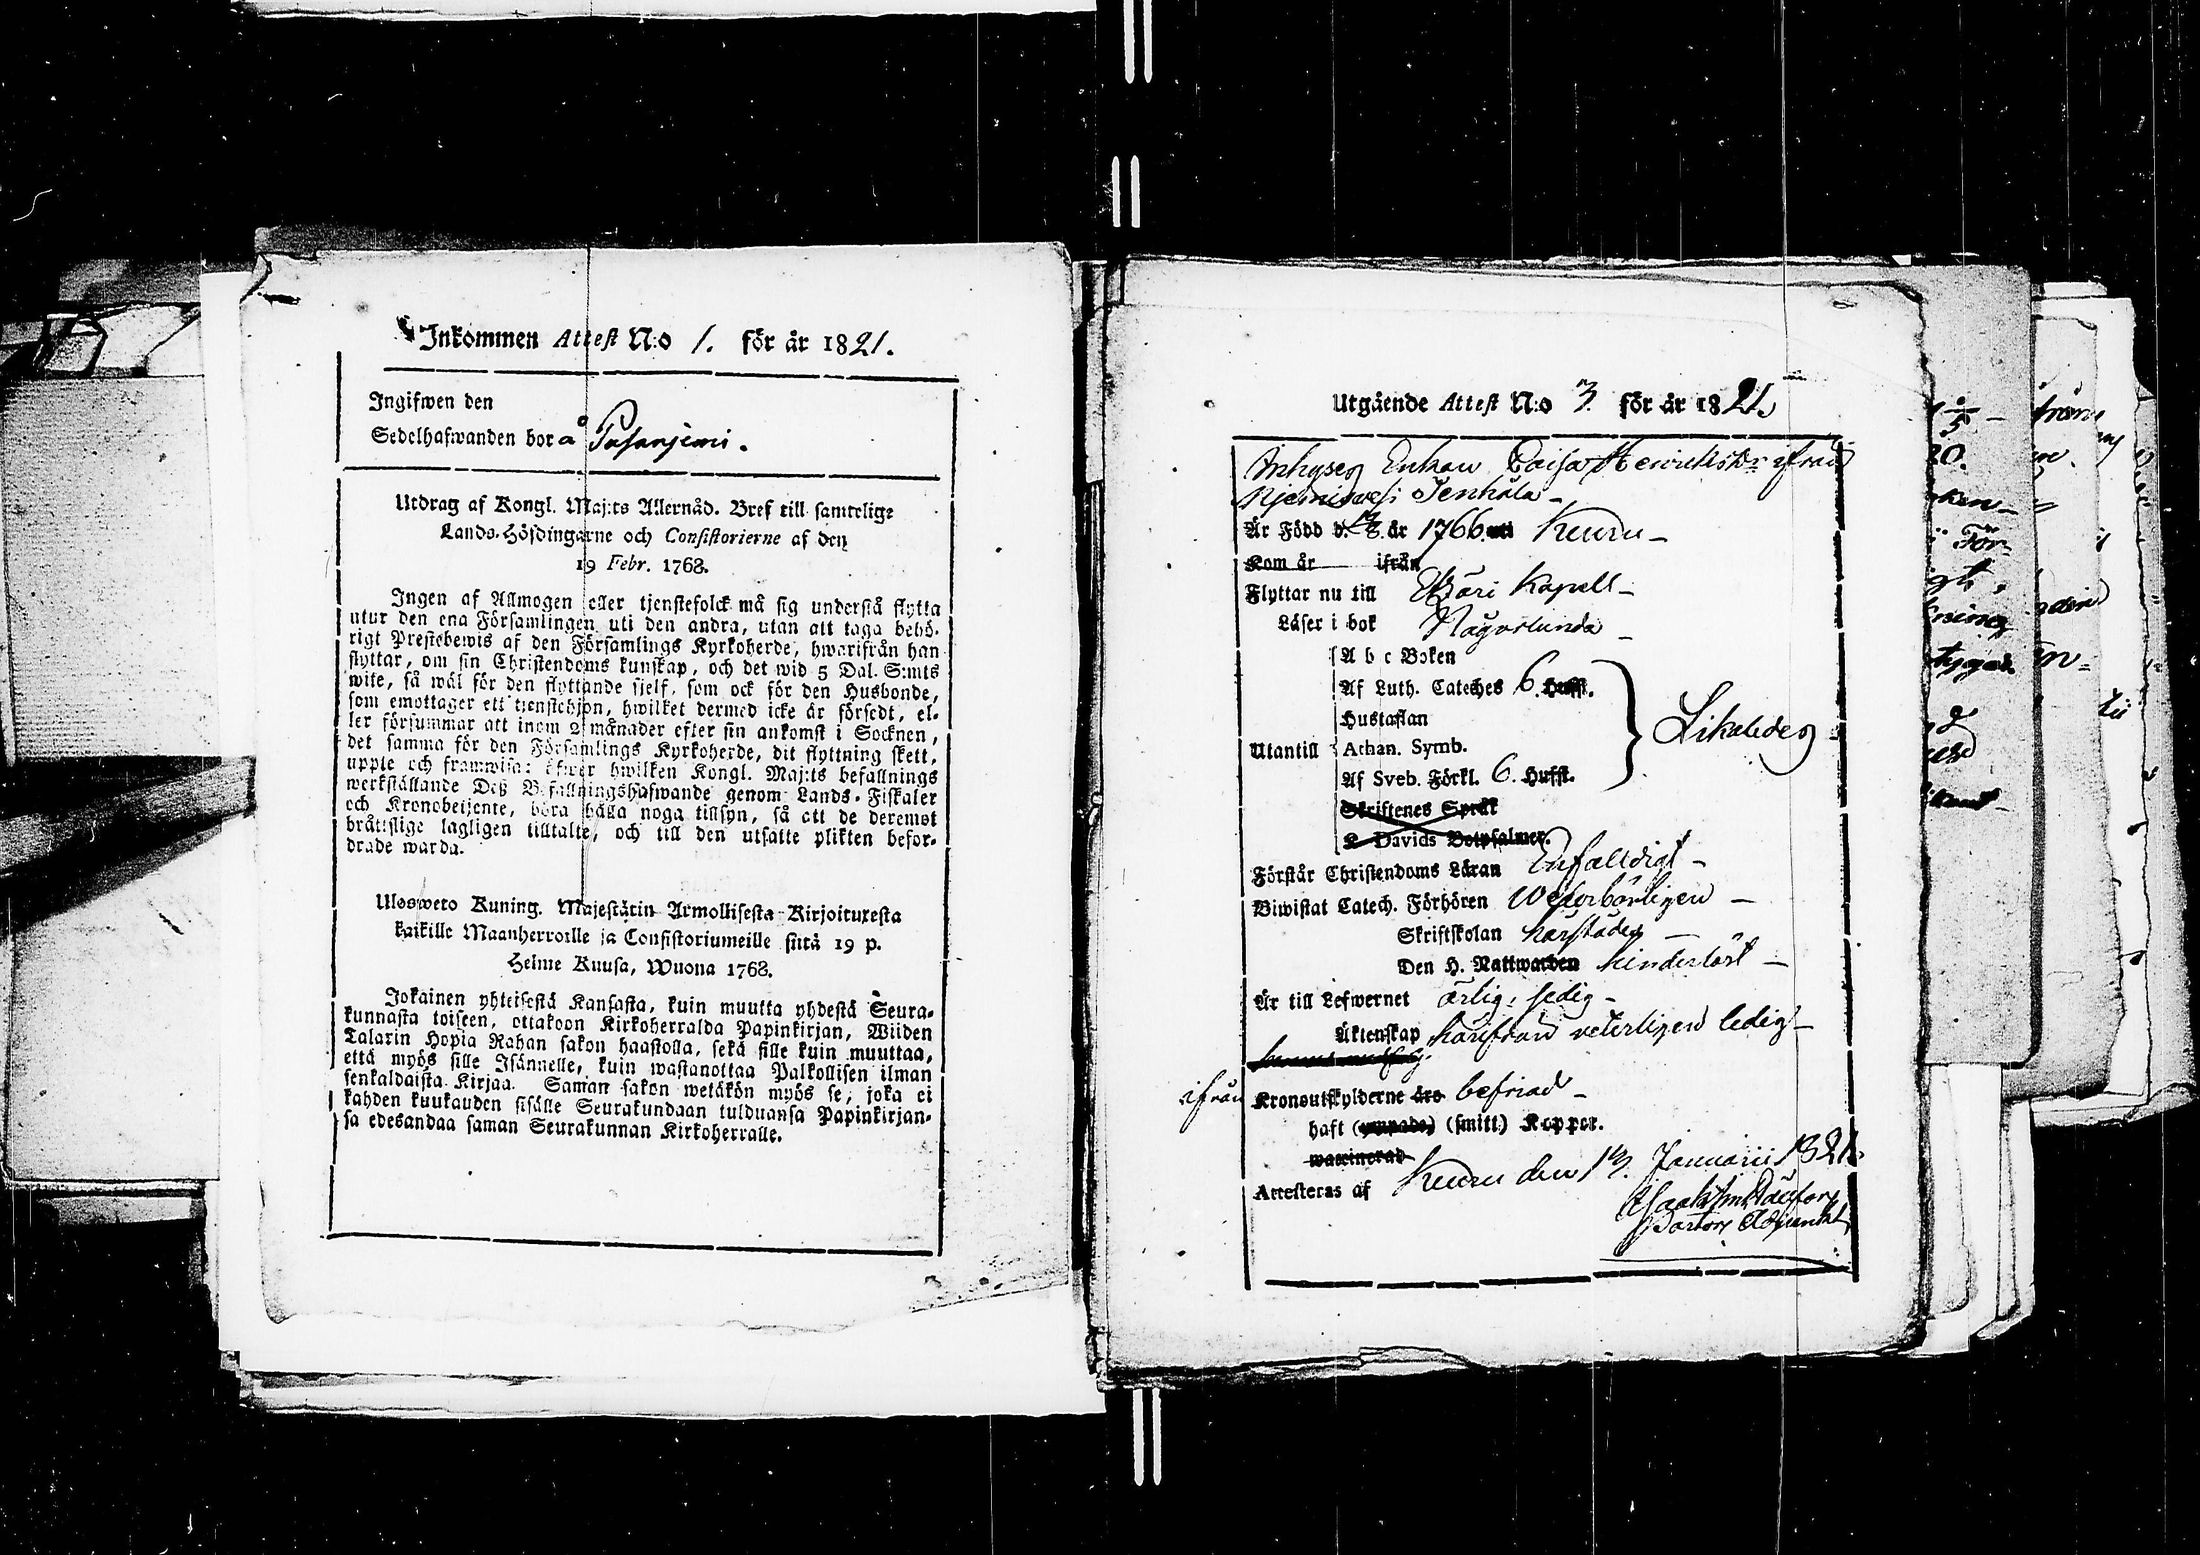 Inkommen Attest N:o 1. för år 1821.
Ingifwen den
Sedelhafwanden bor å Pasanjemi.
Utdrag af Kongl. Maj:ts Allernåd. Bref till samtelige
Lands-Höfdingarne och Consistorierne af den
19 Febr. 1768.
Ingen af Allmogen eller tjenstefolck må sig understå flytta
utur den ena Församlingen uti den andra, utan att taga behö-
rigt Prestebewis af den Församlings Kyrkoherde, hwarifrån han
flyttar, om sin Christendoms kunskap, och det wid 5 Dal. S:mts
wite, så wäl för den flyttande sjelf, som ock för den Husbonde,
som emottager ett tjenstehjon, hwilket dermed icke är försedt, el-
ler försummar att inom 2 månader efter sin ankomst i Socknen,
det samma för den Församlings Kyrkoherde, dit flyttning skett,
uppte och framwisa: öfwer hwilken Kongl. Maj:ts befallnings
werkställande Deß Befallningshafwande genom Lands-Fiskaler
och Kronobetjente, böra hålla noga tillsyn, så att de deremot
bråttslige lagligen tilltalte, och till den utsatte plikten befor-
drade warda.
Ulosweto Kuning. Majestätin Armollisesta Kirjoituxesta
kaikille Maanherroille ja Consistoriumeille siitä 19 p.
Helme Kuusa, Wuona 1768.
Jokainen yhteisestä Kansasta, kuin muutta yhdestä Seura-
kunnasta toiseen, ottakoon Kirkoherralda Papinkirjan, Wiiden
Talarin Hopia Rahan sakon haastolla, sekä sille kuin muuttaa,
että myös sille Isännelle, kuin wastanottaa Palkollisen ilman
senkaldaista Kirjaa. Saman sakon wetäkön myös se, joka ei
kahden kuukauden sisälle Seurakundaan tulduansa Papinkirjan-
sa edesandaa saman Seurakunnan Kirkoherralle.
Utgående Attest N:o 3. för år 1821.
Inhyses Enkan Caisa Henriksdr ifrån
Niemisvesi Tenhola
Är Född d. år 1766 uti Keuru
Kom år ifrån
Flyttar nu till Etzäri Kapell
Läser i bok Någorlunda
A b c Boken
Af Luth. Cateches 6. Hufst.
Hustaflan
Utantill Athan. Symb. Likaledes
Af Sveb. Förkl. 6. Hufst.
Skriftenes Språk
K. Davids Botpsalmer.
Förstår Christendoms Läran Enfalldigt
Biwistat Catech. Förhören Wederbörligen
Skriftskolan härstädes
Den H. Nattwarden hinderlöst
Är till Lefwernet ärlig, sedig
Äktenskap härifrån veterligen ledig
ifrån Kronoutskylderne äro befriad
haft (ympade) (smitt) Koppor.
waccinerad
Attesteras af Keuru den 13. Januarii 1821.
Pastors Adjunkt